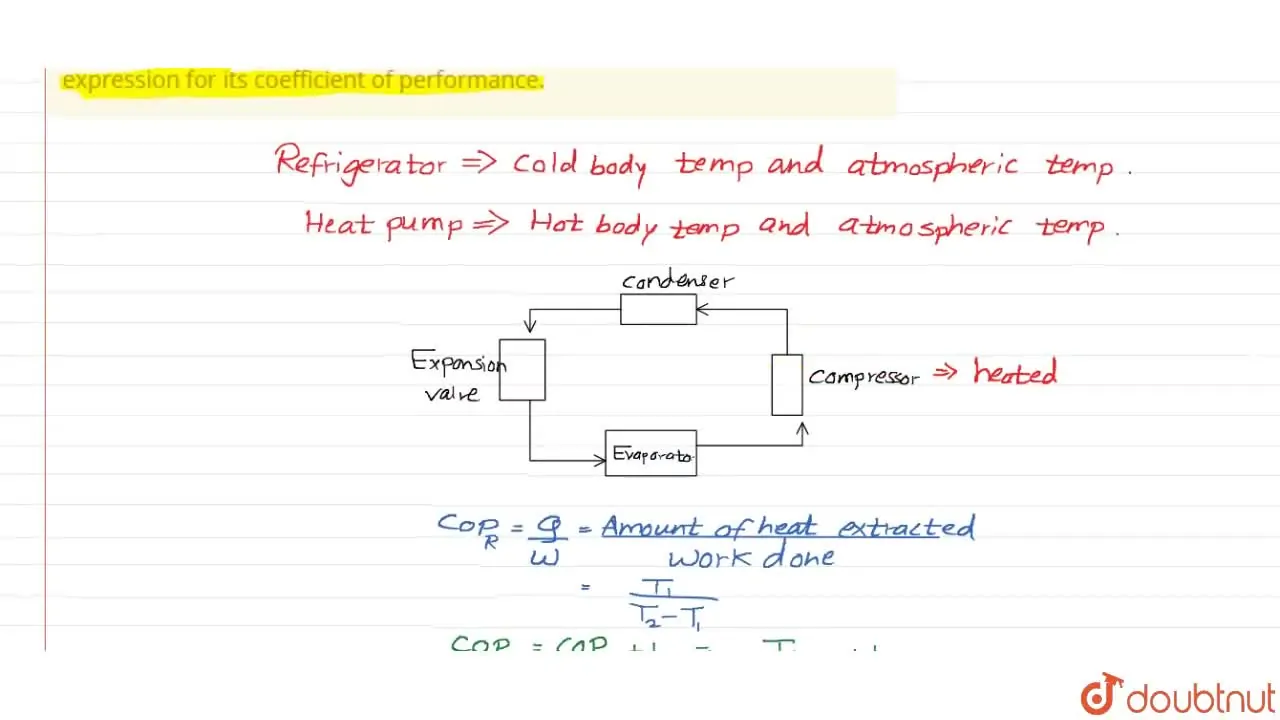 expression for its coefficient of performance.
Refrigerator => Cold body temp and atmospheric temp.
Heat pump => Hot body temp and atmospheric temp.
Condenser
Expansion
valve
Compressor => heated
Evaporato
COP_R = Q/W = Amount of heat extracted / Work done
= T₁ / T₂ - T₁
COP = COP + 1 =
doubtnut